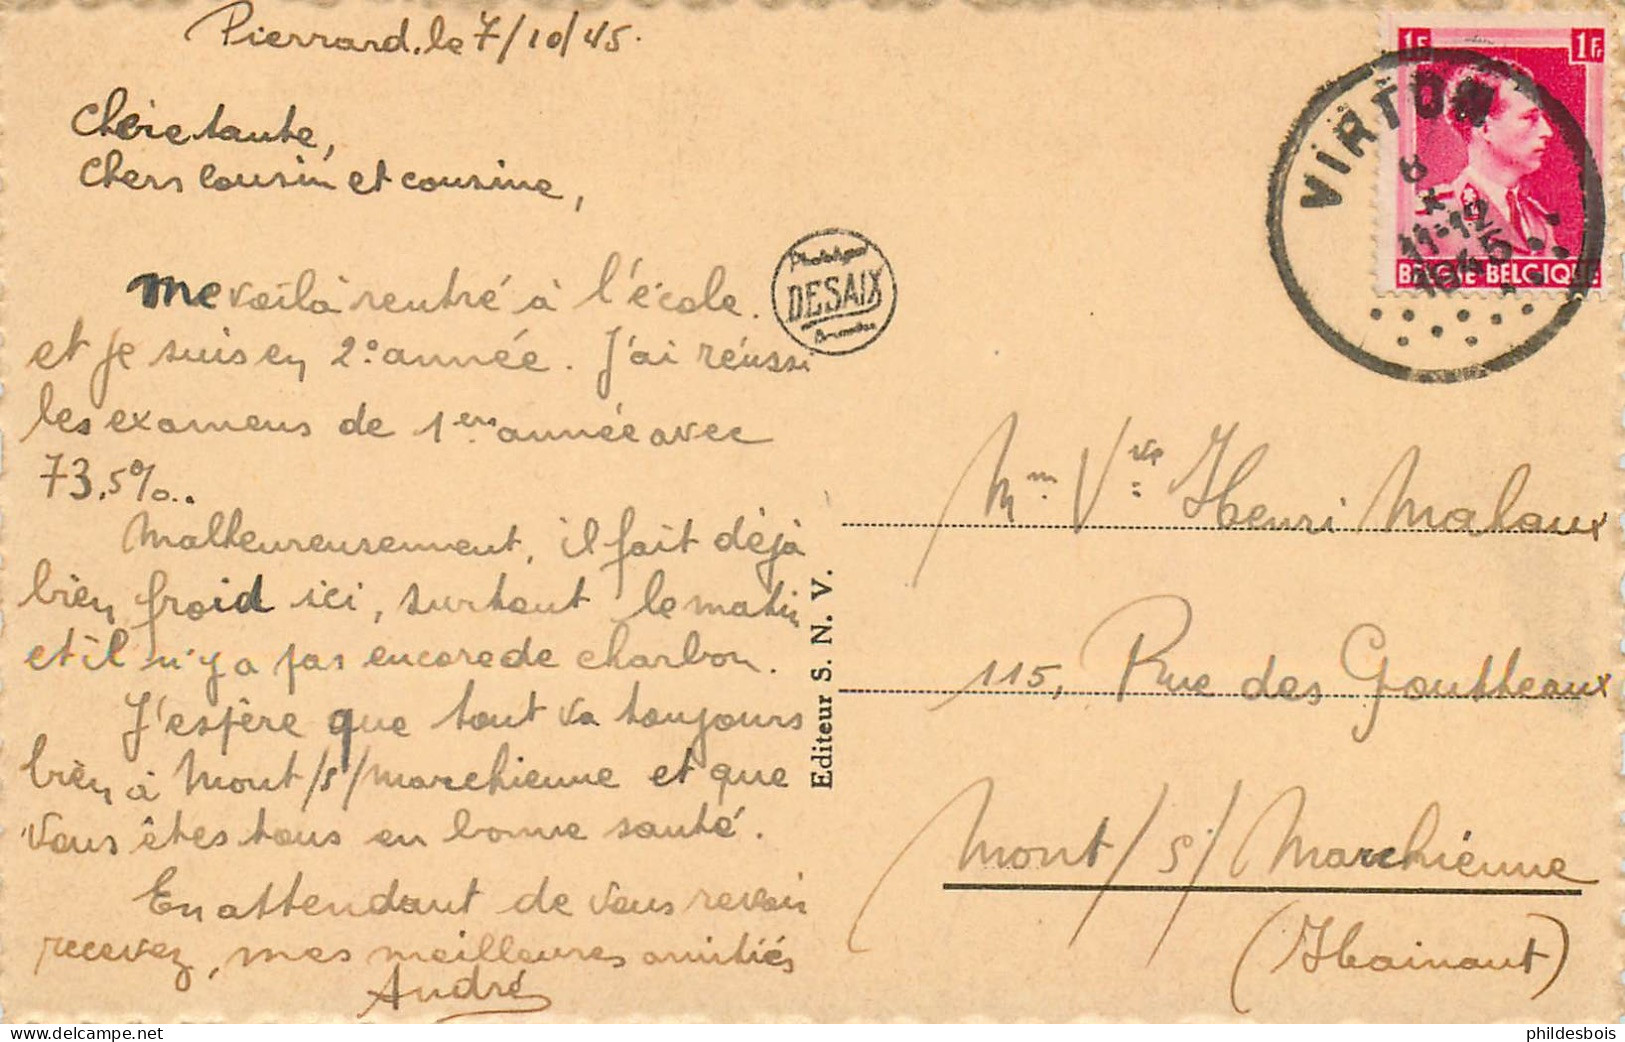 Pierrard, le 7/10/45.
Chère tante,
Chers cousin et cousine,
Me voilà rentré à l'école.
et je suis en 2e année. J'ai réussi
les examens de 1ère année avec
73,5%..
Malheureusement, il fait déjà
bien froid ici, surtout le matin
et il n'y a pas encore de charbon.
J'espère que tout va toujours
bien à Mont/s/Marchienne et que
vous êtes tous en bonne santé.
En attendant de vous revoir
recevez, mes meilleures amitiés
André
DESAIX
Editeur S. N. V.
1F 1Fr
BELGIE-BELGIQUE
VIRTON
8
X
11-12
1945
Mm Vve Henri Malaux
115, Rue des Goutteaux
Mont/s/Marchienne
(Hainaut)
phildesbois